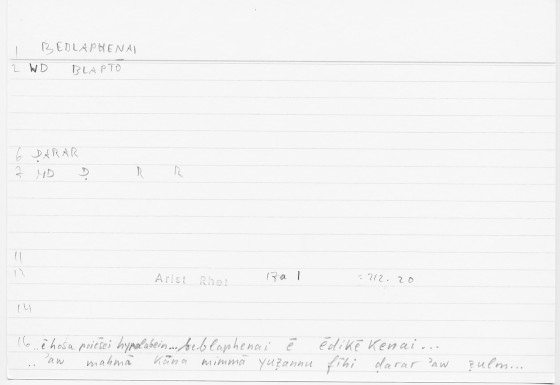 1 BEBLAPHENAI
2 WD BLAPTO
6 ḌARAR
7 WD Ḍ R R
11
12 Arist Rhet 17a 1 = 212.20
14
16 ..ē hosa poiēsei hypolabein... beblaphenai ē ēdikēkenai...
..ʾaw mahmā kāna mimmā yuẓannu fīhi ḍarar ʾaw ẓulm...